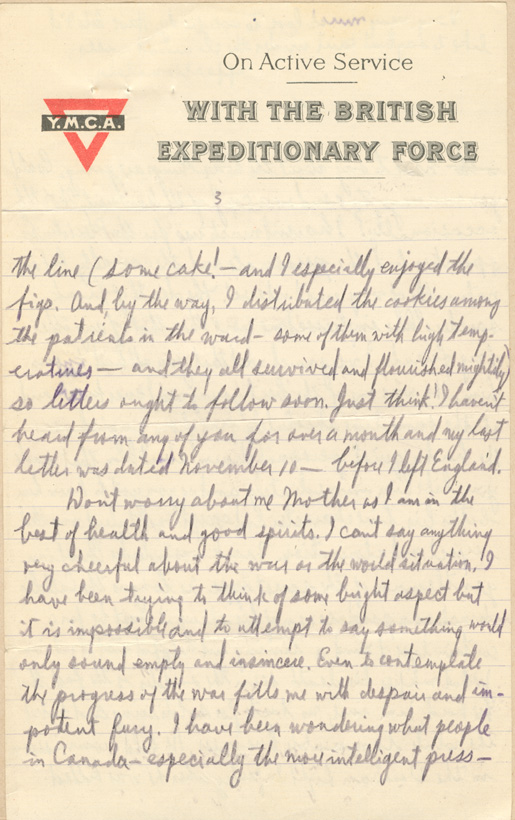 On Active Service
WITH THE BRITISH
EXPEDITIONARY FORCE
Y.M.C.A.
3
the line (some cake! — and I especially enjoyed the
figs. And, by the way, I distributed the cookies among
the patients in the ward — some of them with high temp-
eratures — and they all survived and flourished mightily)
so letters ought to follow soon. Just think! I haven't
heard from any of you for over a month and my last
letter was dated November 10 — before I left England.
Don't worry about me Mother as I am in the
best of health and good spirits. I can't say anything
very cheerful about the war or the world situation. I
have been trying to think of some bright aspect but
it is impossible and to attempt to say something would
only sound empty and insincere. Even to contemplate
the progress of the war fills me with despair and im-
potent fury. I have been wondering what people
in Canada — especially the more intelligent press —